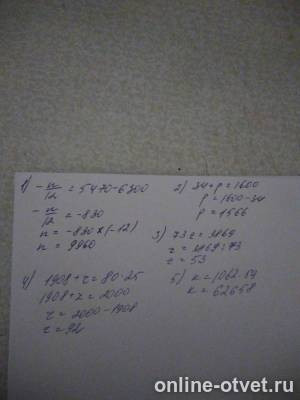 1) - n/12 = 5470-6300
- n/12 = -830
n = -830 x (-12)
n = 9960
2) 34+p=1600
p = 1600-34
p = 1566
3) 73z = 3869
z = 3869:73
z = 53
4) 1908+z=80·25
1908+z=2000
z = 2000-1908
z = 92
5) k=1062·59
k = 62658
online-otvet.ru